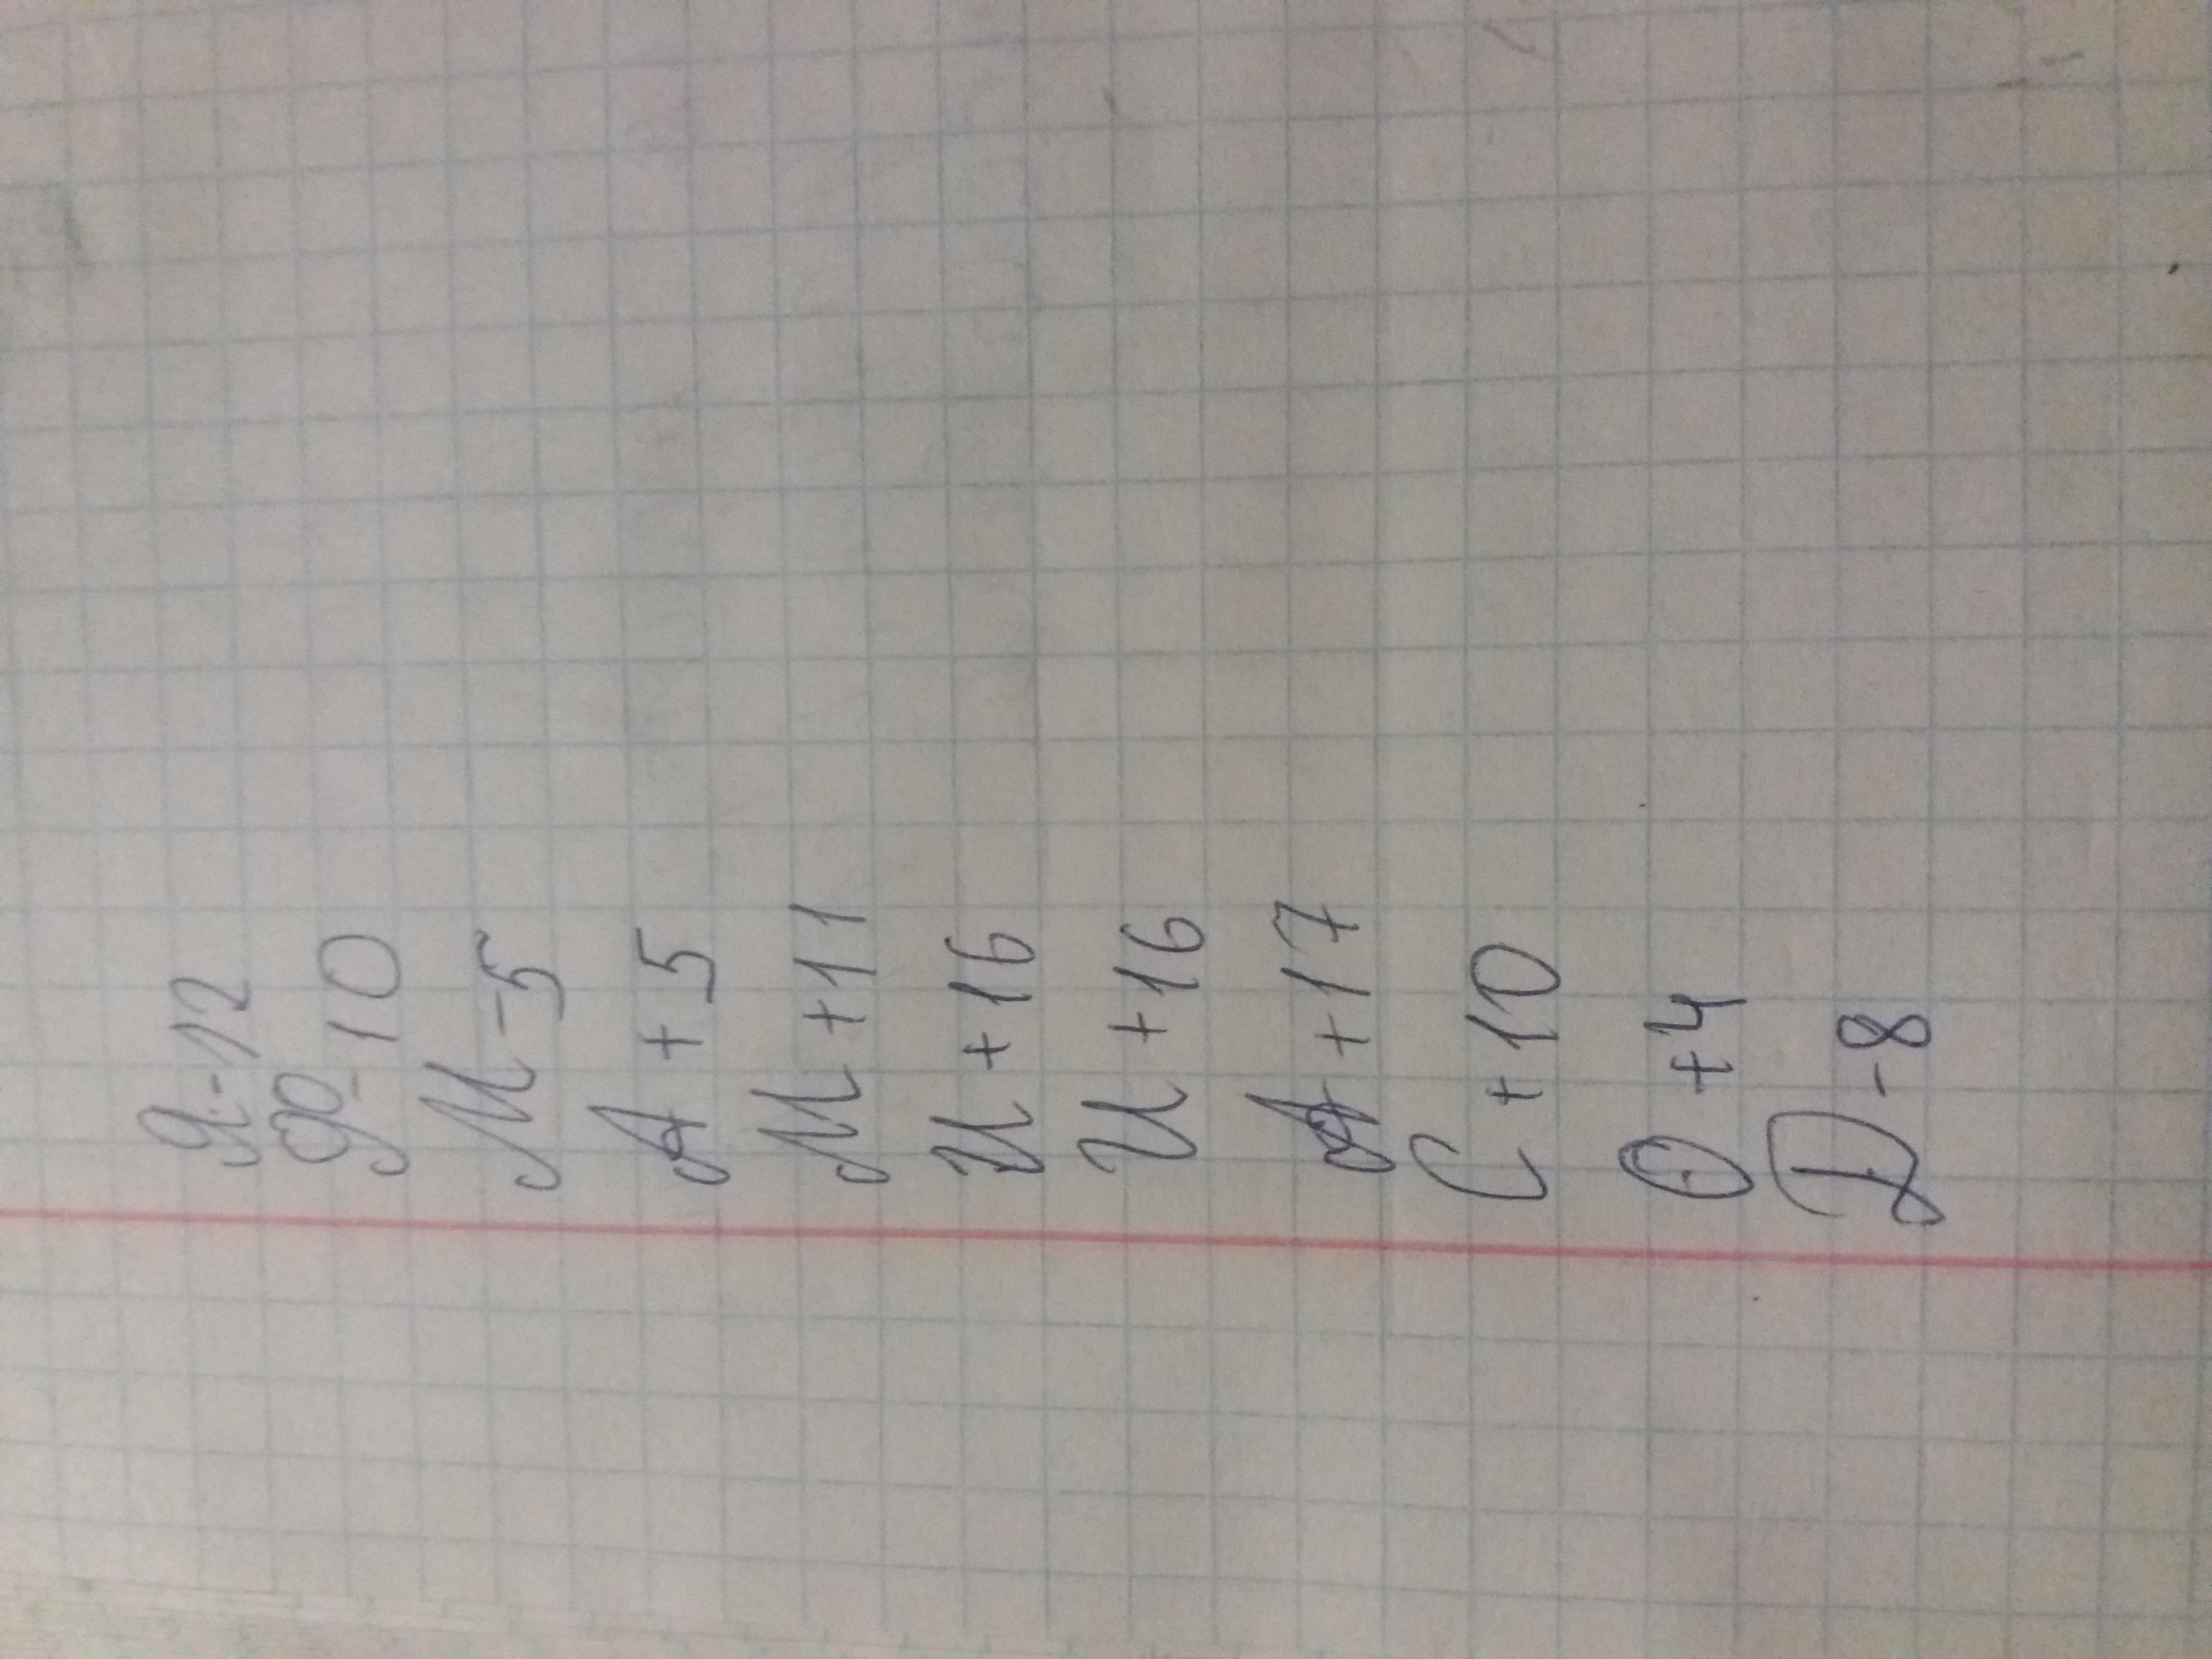 Я-12
Ф-10
М-5
А+5
М+11
И+16
И+16
А+17
С+10
О+4
Д-8